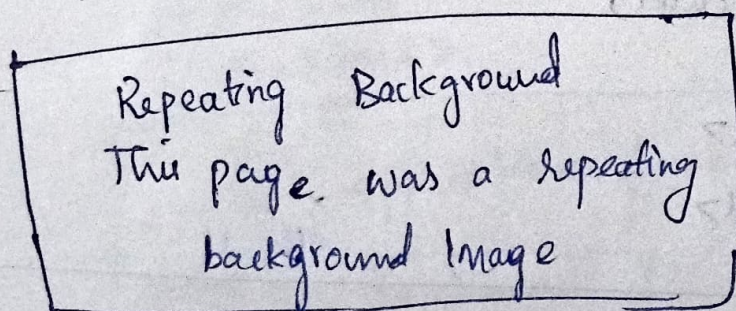 Repeating Background
This page. was a repeating
background Image